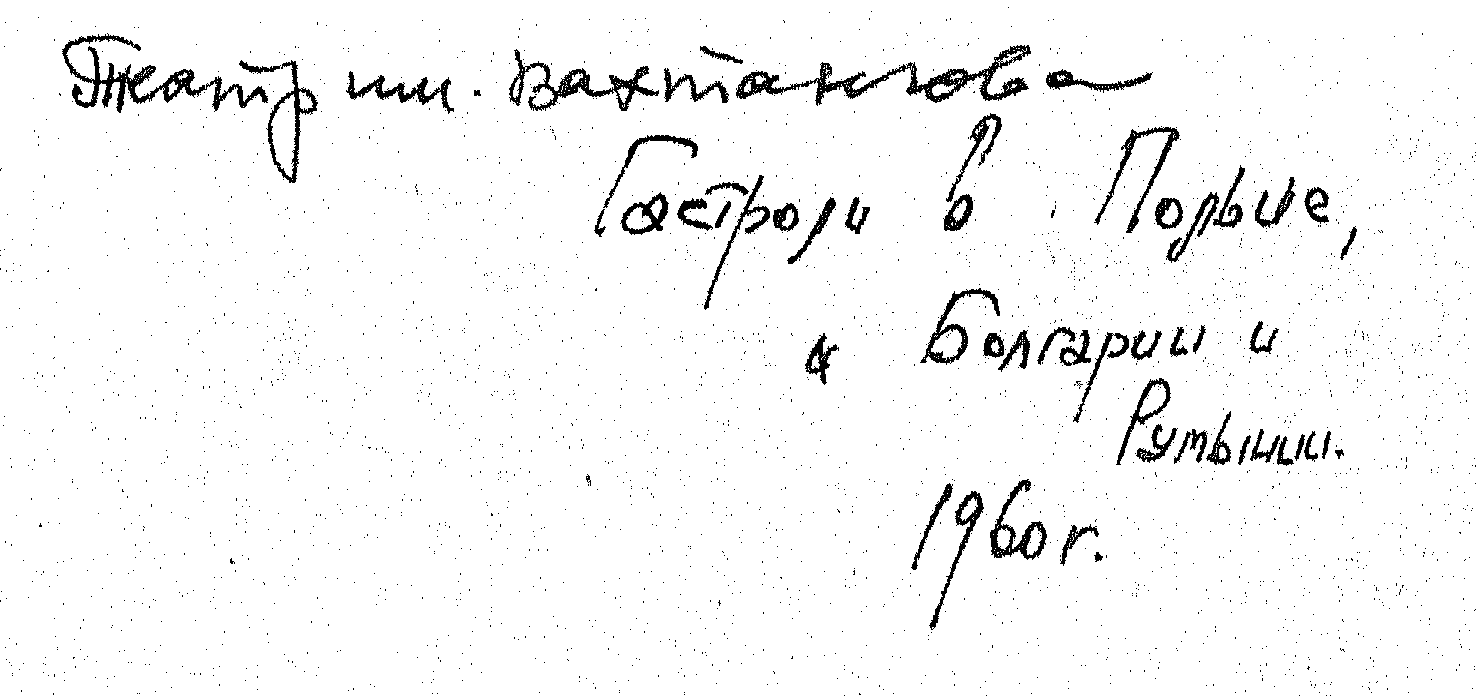 Театр им. Вахтангова
Гастроли в Польше,
Болгарии и
Румынии.
1960 г.